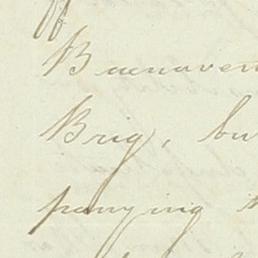 Buenaven
Brig, bu
panying t